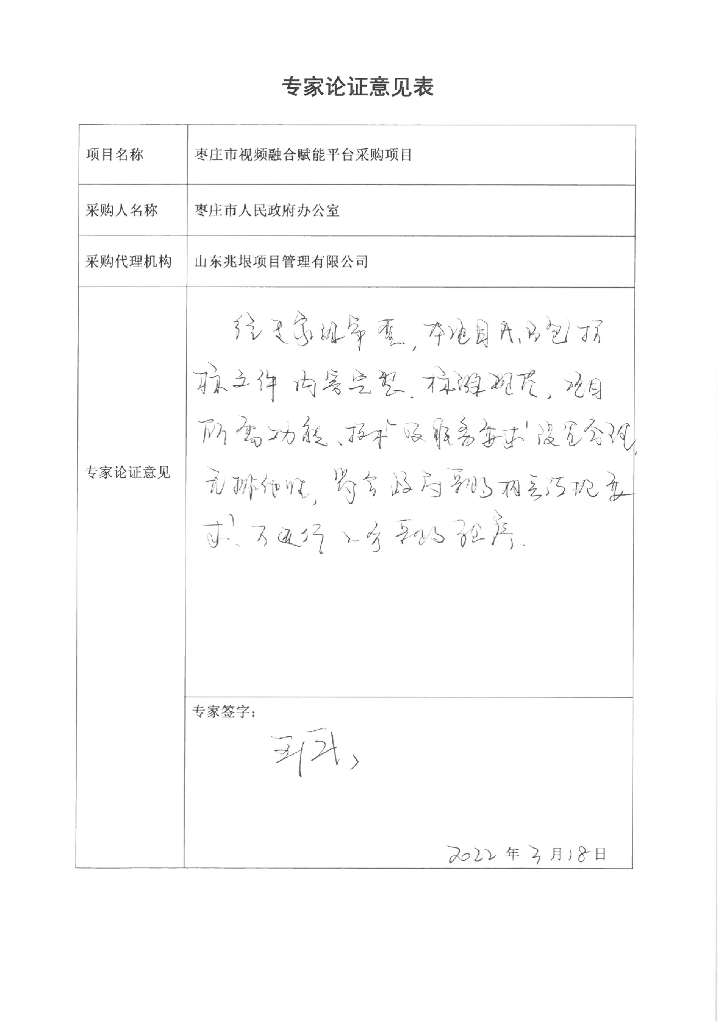 专家论证意见表
项目名称
枣庄市视频融合赋能平台采购项目
采购人名称
枣庄市人民政府办公室
采购代理机构
山东兆垠项目管理有限公司
专家论证意见
经专家组审查,本项目A、B包招
标文件内容完整、标准规范,项目
所需功能、技术及服务要求设置合理,
无排他性,符合政府采购相关法规要
求,可进行公开采购程序.
专家签字:
2022年3月18日